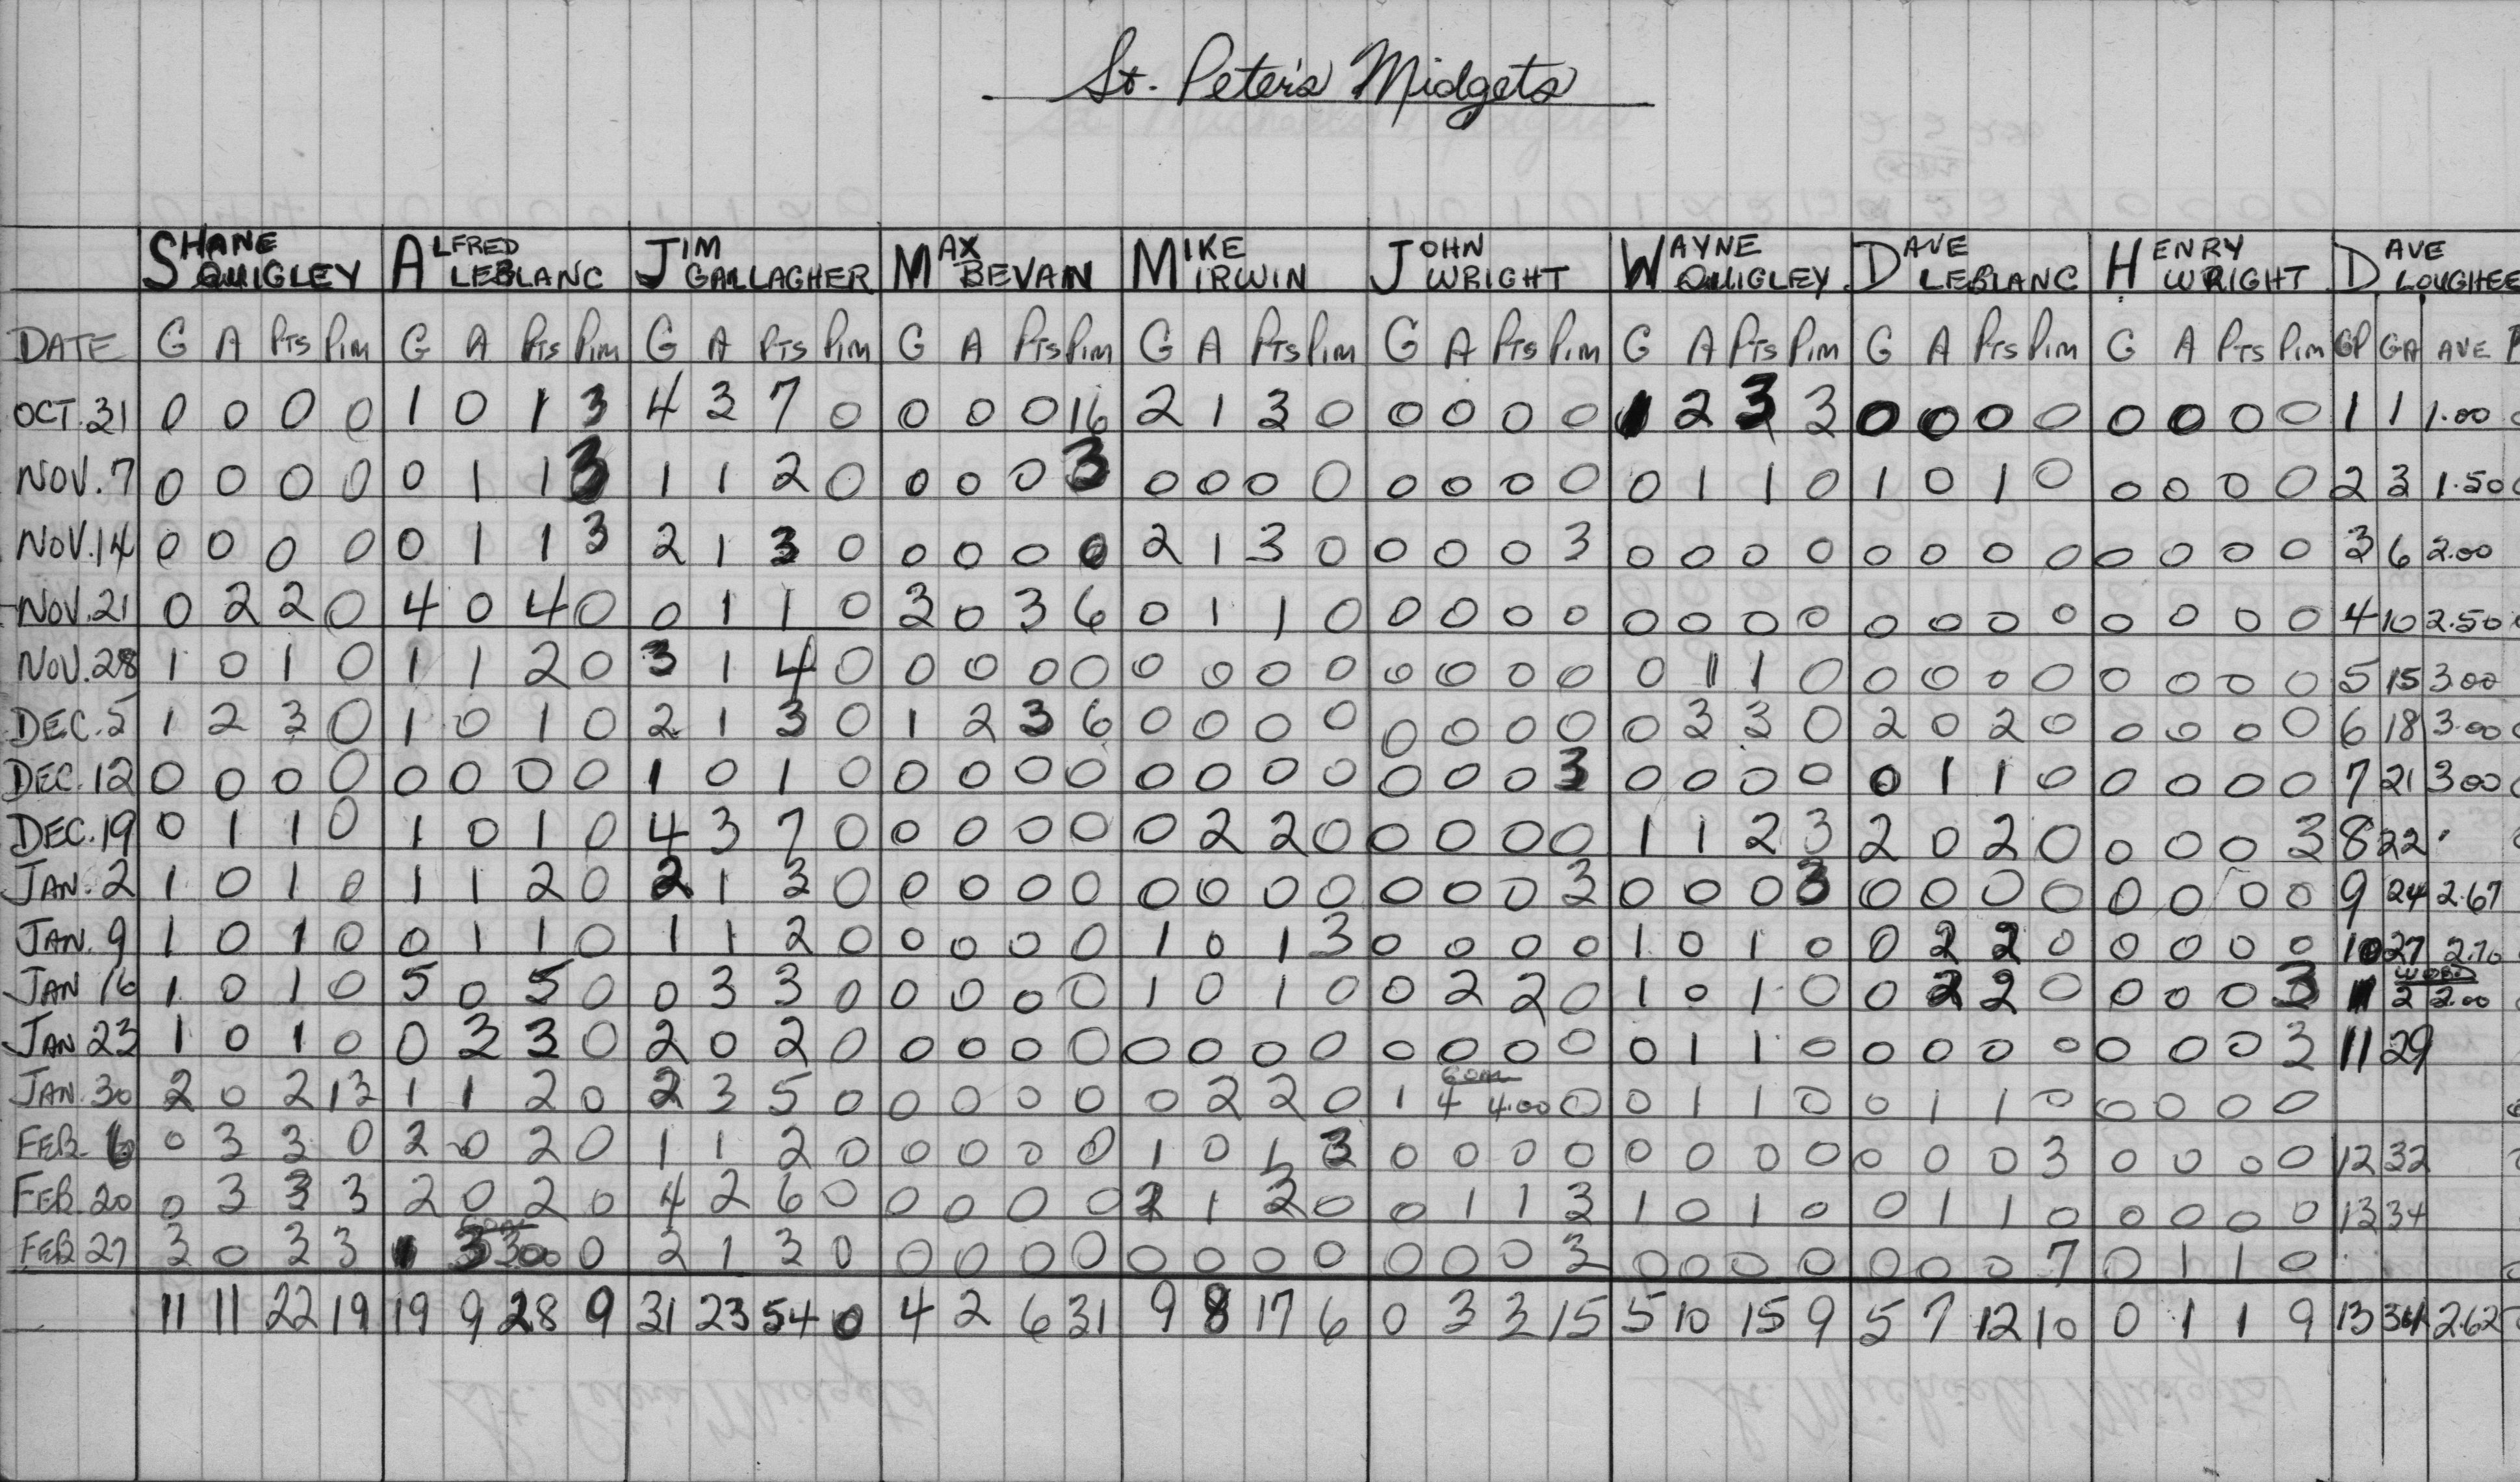 St. Peter's Midgets
SHANE QUIGLEY ALFRED LEBLANC JIM GALLAGHER MAX BEVAN MIKE IRWIN JOHN WRIGHT WAYNE QUIGLEY DAVE LEBLANC HENRY WRIGHT DAVE LOUGHEE
DATE G A Pts Pim G A Pts Pim G A Pts Pim G A Pts Pim G A Pts Pim G A Pts Pim G A Pts Pim G A Pts Pim G A Pts Pim GP GA AVE
OCT. 31 0 0 0 0 1 0 1 3 4 3 7 0 0 0 0 16 2 1 3 0 0 0 0 0 1 2 3 3 0 0 0 0 0 0 0 0 1 1 1.00
NOV. 7 0 0 0 0 0 1 1 3 1 1 2 0 0 0 0 3 0 0 0 0 0 0 0 0 0 1 1 0 1 0 1 0 0 0 0 0 2 3 1.50
NOV. 14 0 0 0 0 0 1 1 3 2 1 3 0 0 0 0 0 2 1 3 0 0 0 0 3 0 0 0 0 0 0 0 0 0 0 0 0 3 6 2.00
NOV. 21 0 2 2 0 4 0 4 0 0 1 1 0 3 0 3 6 0 1 1 0 0 0 0 0 0 0 0 0 0 0 0 0 0 0 0 0 4 10 2.50
NOV. 28 1 0 1 0 1 1 2 0 3 1 4 0 0 0 0 0 0 0 0 0 0 0 0 0 0 1 1 0 0 0 0 0 0 0 0 0 5 15 3.00
DEC. 5 1 2 3 0 1 0 1 0 2 1 3 0 1 2 3 6 0 0 0 0 0 0 0 0 0 3 3 0 2 0 2 0 0 0 0 0 6 18 3.00
DEC. 12 0 0 0 0 0 0 0 0 1 0 1 0 0 0 0 0 0 0 0 0 0 0 0 3 0 0 0 0 0 1 1 0 0 0 0 0 7 21 3.00
DEC. 19 0 1 1 0 1 0 1 0 4 3 7 0 0 0 0 0 0 2 2 0 0 0 0 0 1 1 2 3 2 0 2 0 0 0 0 3 8 22
JAN. 2 1 0 1 0 1 1 2 0 2 1 3 0 0 0 0 0 0 0 0 0 0 0 0 3 0 0 0 3 0 0 0 0 0 0 0 0 9 24 2.67
JAN. 9 1 0 1 0 0 1 1 0 1 1 2 0 0 0 0 0 1 0 1 3 0 0 0 0 1 0 1 0 0 2 2 0 0 0 0 0 10 27 2.70
JAN 16 1 0 1 0 5 0 5 0 0 3 3 0 0 0 0 0 1 0 1 0 0 2 2 0 1 0 1 0 0 2 2 0 0 0 0 3 2 2.00
JAN 23 1 0 1 0 0 3 3 0 2 0 2 0 0 0 0 0 0 0 0 0 0 0 0 0 0 1 1 0 0 0 0 0 0 0 0 3 11 29
GOAL
JAN. 30 2 0 2 13 1 1 2 0 2 3 5 0 0 0 0 0 0 2 2 0 1 4 4.00 0 0 1 1 0 0 1 1 0 0 0 0 0
FEB. 6 0 3 3 0 2 0 2 0 1 1 2 0 0 0 0 0 1 0 1 3 0 0 0 0 0 0 0 0 0 0 0 3 0 0 0 0 12 32
FEB. 20 0 3 3 3 2 0 2 0 4 2 6 0 0 0 0 0 2 1 3 0 0 1 1 3 1 0 1 0 0 1 1 0 0 0 0 0 13 34
GOAL
FEB 27 3 0 3 3 1 3 3.00 0 2 1 3 0 0 0 0 0 0 0 0 0 0 0 0 3 0 0 0 0 0 0 0 7 0 1 1 0
11 11 22 19 19 9 28 9 31 23 54 0 4 2 6 31 9 8 17 6 0 3 3 15 5 10 15 9 5 7 12 10 0 1 1 9 13 34 2.62